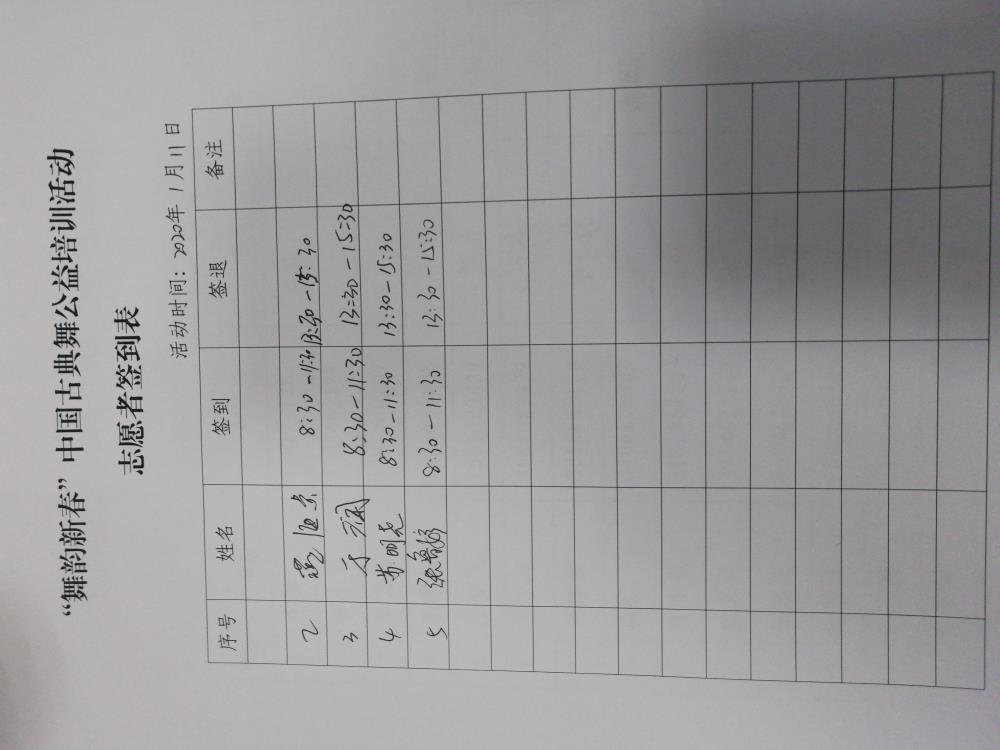 “舞韵新春”中国古典舞公益培训活动
志愿者签到表
活动时间：2020年1月11日
序号 姓名 签到 签退 备注
2 8:30-11:30 13:30-15:30
3 于 8:30-11:30 13:30-15:30
4 苏明尧 8:30-11:30 13:30-15:30
5 张 8:30-11:30 13:30-15:30